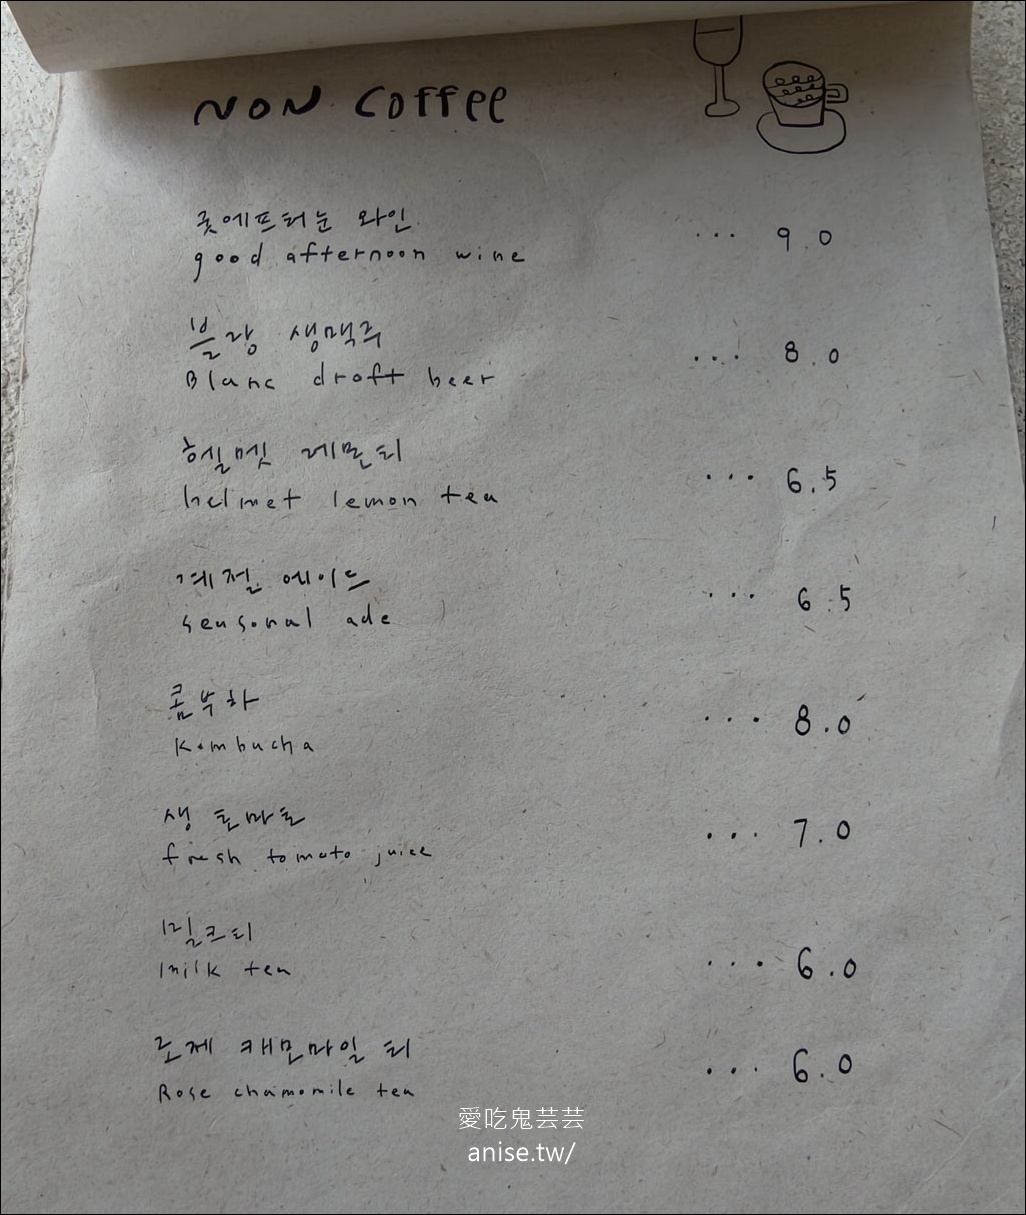 NON Coffee
굿에프터눈 와인
good afternoon wine
... 9.0
블랑 생맥주
Blanc droft beer
... 8.0
헬멧 레몬티
helmet lemon tea
... 6.5
계절 에이드
seasonal ade
... 6.5
콤부차
Kombucha
... 8.0
생 토마토
fresh tomato juice
... 7.0
밀크티
milk tea
... 6.0
로제 캐모마일 티
Rose chamomile tea
... 6.0
愛吃鬼芸芸
anise.tw/